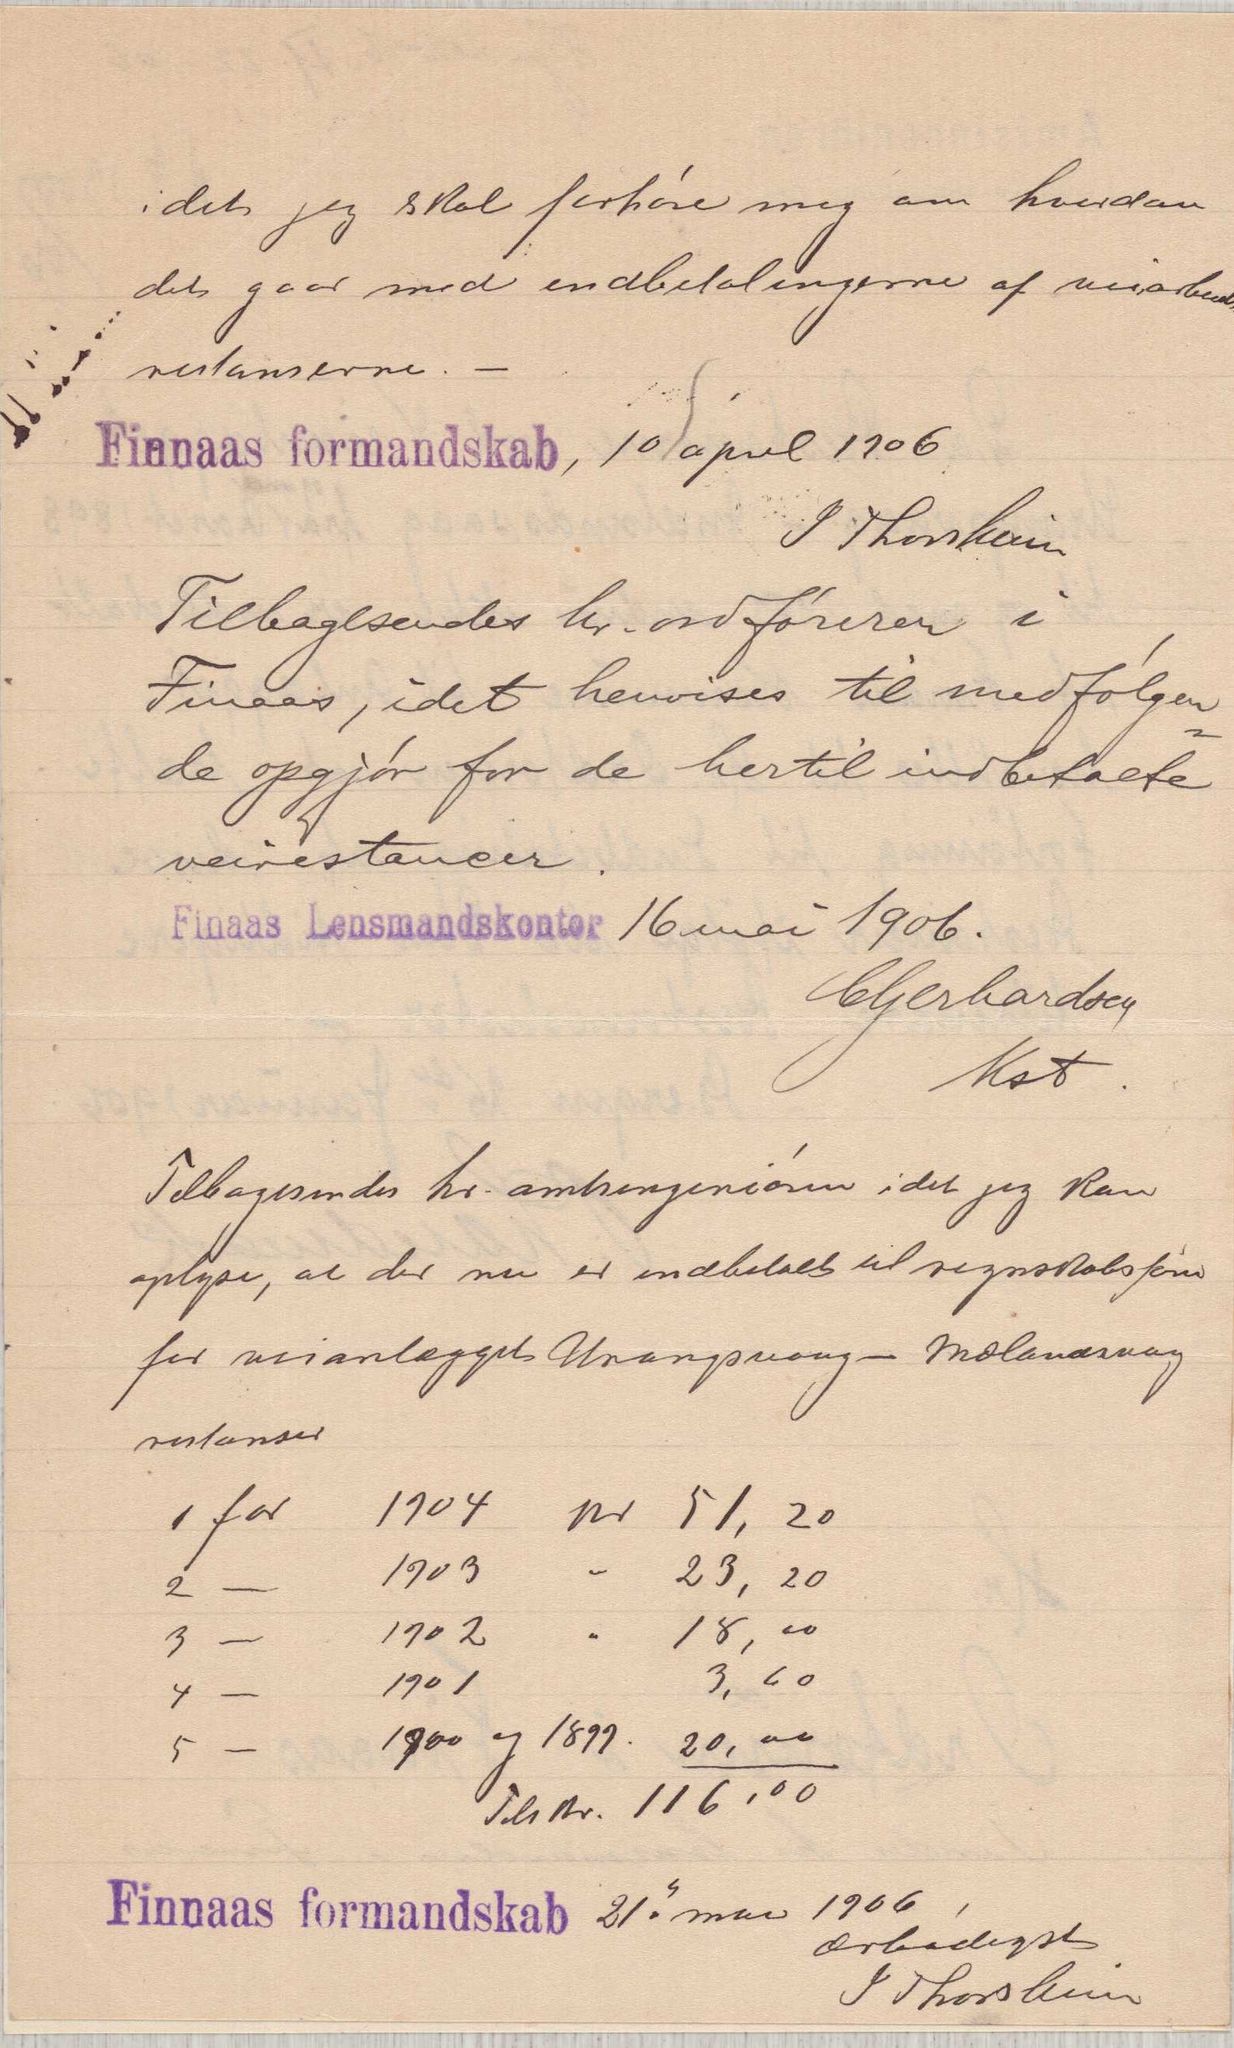 idet jeg skal forhöre mig om hvordan
det gaar med indbetalingerne af veiarbeids
restanserne. —
Finnaas formandskab, 10/ april 1906
J Thorsheim
Tilbagesendes hr. ordförerer i
Finaas, idet henvises til medfölgen
de opgjör for de hertil indbetalte
veirestancer.
Finaas Lensmandskontor 16 mai 1906.
Gerhardsen
Kst.
Tilbagesendes hr. amtsingeniören idet jeg kan
oplyse, at der nu er indbetalt til regnskabsförer
for veianlægget Urangsvaag — Mælandsvaag
restanser
1 for 1904 kr 51,20
2 — 1903 " 23,20
3 — 1902 " 18,00
4 — 1901 3,60
5 — 1900 og 1899. 20,00
Tils kr. 116,00
Finnaas formandskab 21. mai 1906
ærbödigst
J Thorsheim